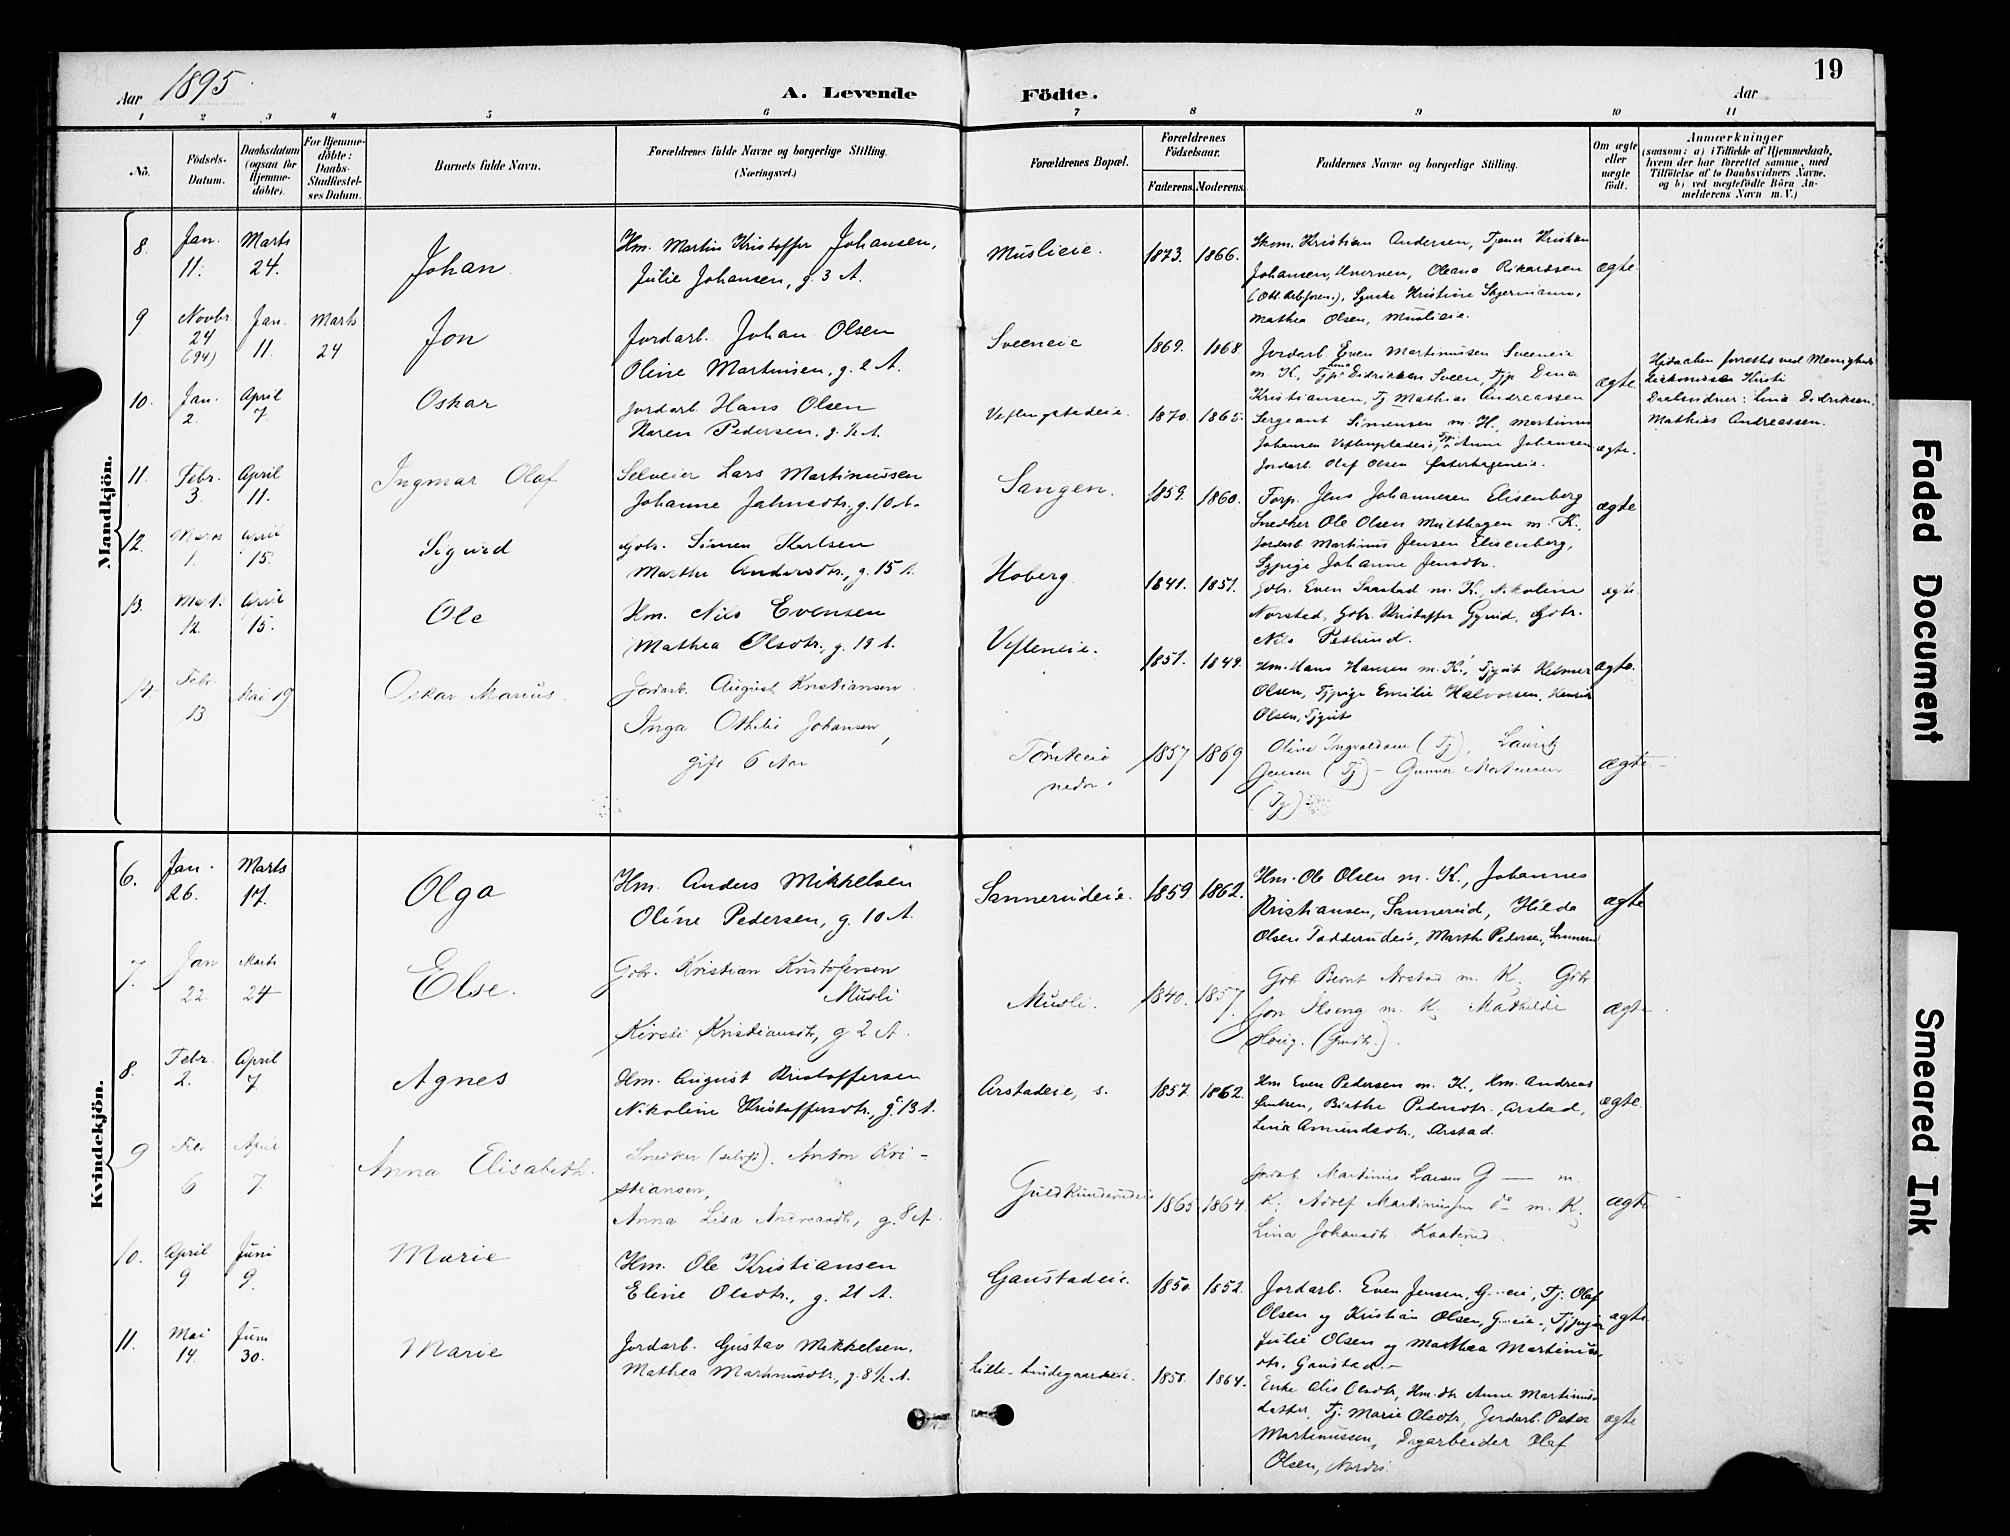 19
Aar 1895
A. Levende Födte.
Aar
1 2 3 4 5 6 7 8 9 10 11
No.
Födsels-Datum.
Daabsdatum (ogsaa for Hjemme-döbte).
For Hjemme-döbte: Daabs-Stadfæstel-ses Datum.
Barnets fulde Navn.
Forældrenes fulde Navne og borgerlige Stilling.
(Næringsvei.)
Forældrenes Bopæl.
Forældrenes Födselsaar.
Faderens. Moderens.
Faddernes Navne og borgerlige Stilling.
Om ægte eller uægte födt.
Anmærkninger
(saasom: a) i Tilfælde af Hjemmedaab,
hvem der har forrettet samme, med
Tilföielse af to Daabsvidners Navne,
og b) ved uægtefödte Börn An-
melderens Navn m. V.)
Mandkjön.
8. Jan. 11. Marts 24. Johan
Hm. Martin Kristoffer Johansen,
Julie Johansen, g. 3 A.
Muslieie. 1873. 1866.
Skom. Kristian Andersen, Tjener Kristian
Johansen, Oleana Rikardsen
Kristine
Mathea Olsen, Muslieie.
ægte.
9 Novbr 24 (94) Jan. 11. Marts 24 Jon
Jordarb. Johan Olsen
Oline Martinsen, g. 2 A.
Sveeneie 1869. 1868.
Jordarb. Even Martinusen Sveeneie
m. K., Didriksen Sveen, Tjp. Dina
Kristiansen, Tj. Mathias Andreassen
ægte.
Hjdaaben forrettet ved
Kirsti
Daabsvidner: Lina Didriksen,
Mathias Andreassen.
10. Jan. 2. April 7. Oskar
Jordarb. Hans Olsen
Karen Pedersen, g. ½ A.
1870. 1865.
Sergeant Simensen m. H., Martinus
Johansen Anne Johansen
Jordarb. Olaf Olsen
ægte.
11. Febr. 3. April 11. Ingmar Olaf
Selveier Lars Martinussen
Johanne Jahnsdtr., g. 10 A.
Sangen. 1859. 1860.
Forp. Jens Johannesen Elisenberg
Snedker Ole Olsen m. K.,
Jordarb. Martinus Jensen Elisenberg,
Johanne Jensdtr.
ægte
12. Marts 1. April 15. Sigurd
Gbr. Simen Karlsen
Marthe Andersdtr., g. 15 A.
Hoberg. 1841. 1851.
Gbr. Even Saastad m. K., Nikoline
Norstad, Gbr. Kristoffer Gbr.
Nils
ægte.
13. Marts 12. April 15. Ole
Hm. Nils Evensen
Mathea Olsdtr., g. 19 A.
1851. 1849.
Hm. Hans Hansen m. K., Tjgut Helmer
Olsen, Tjpige Emilie Halvorsen, Henrik
Olsen, Tjgut
ægte.
14. Febr. 13 Mai 19 Oskar Marius.
Jordarb. August Kristiansen
Inga Othilie Johansen,
gift 6 Aar
nedre. 1857 1869
Oline Ingvaldsen (Tj), Lauritz
Jensen (Tj) – Gunnar Mortensen
(Tj)
ægte
Kvindekjön.
6. Jan. 26. Marts 17. Olga
Hm. Anders Mikkelsen
Oline Pedersen, g. 10 A.
Sannerudeie. 1859 1862.
Hm. Ole Olsen m. K., Johannes
Kristiansen, Sannerud, Hilda
Olsen Tadderudeie, Marthe Pedersen, Sannerud
ægte
7. Jan 22. Marts 24 Else.
Gbr. Kristian Kristofersen
Musli
Kirsti Kristiansdtr, g 2 A.
Musli. 1840. 1857.
Gbr. Bernt Arstad m. K. Gbr
Jon Ilseng m. K. Mathilde
Houg.
ægte
8. Febr. 2. April 7 Agnes
Hm. August Kristoffersen
Nikoline Kristoffersdtr., g. 13 A.
Arstadeie, s. 1857. 1862.
Hm Even Pedersen m. K., Hm. Andreas
Birthe Pedersdtr., Arstad,
Lina Amundsdtr., Arstad.
ægte
9 Feb 6 April 7. Anna Elisabeth.
Snedker Anton Kri-
stiansen,
Anna Lisa g. 8 A.
1865 1864.
Jordarb. Martinus Larsen G — m.
K; Adolf Martinussen do m. K;
Lina Johansdtr
ægte
10. April 9 Juni 9. Marie
Hm. Ole Kristiansen
Eline Olsdtr., g. 21 A.
Gaustadeie. 1850. 1852.
Jordarb. Even Jensen, G..eie, Tj. Olaf
Olsen og Kristian Olsen, G..eie,
Julie Olsen og Marthea Martinus-
dtr. Gaustad.–
ægte
11. Mai 14. Juni 30. Marie
Jordarb. Gustav Mikkelsen,
Mathea Martinusdtr., g. 8½ A.
1858. 1864.
Enke Olsdtr, Hm.dtr Anne Martinus-
datter, Tj. Marie Olsdtr, Jordarb. Peter
Martinussen, Dagarbeider Olaf
Olsen,
ægte
Faded Document
Smeared Ink